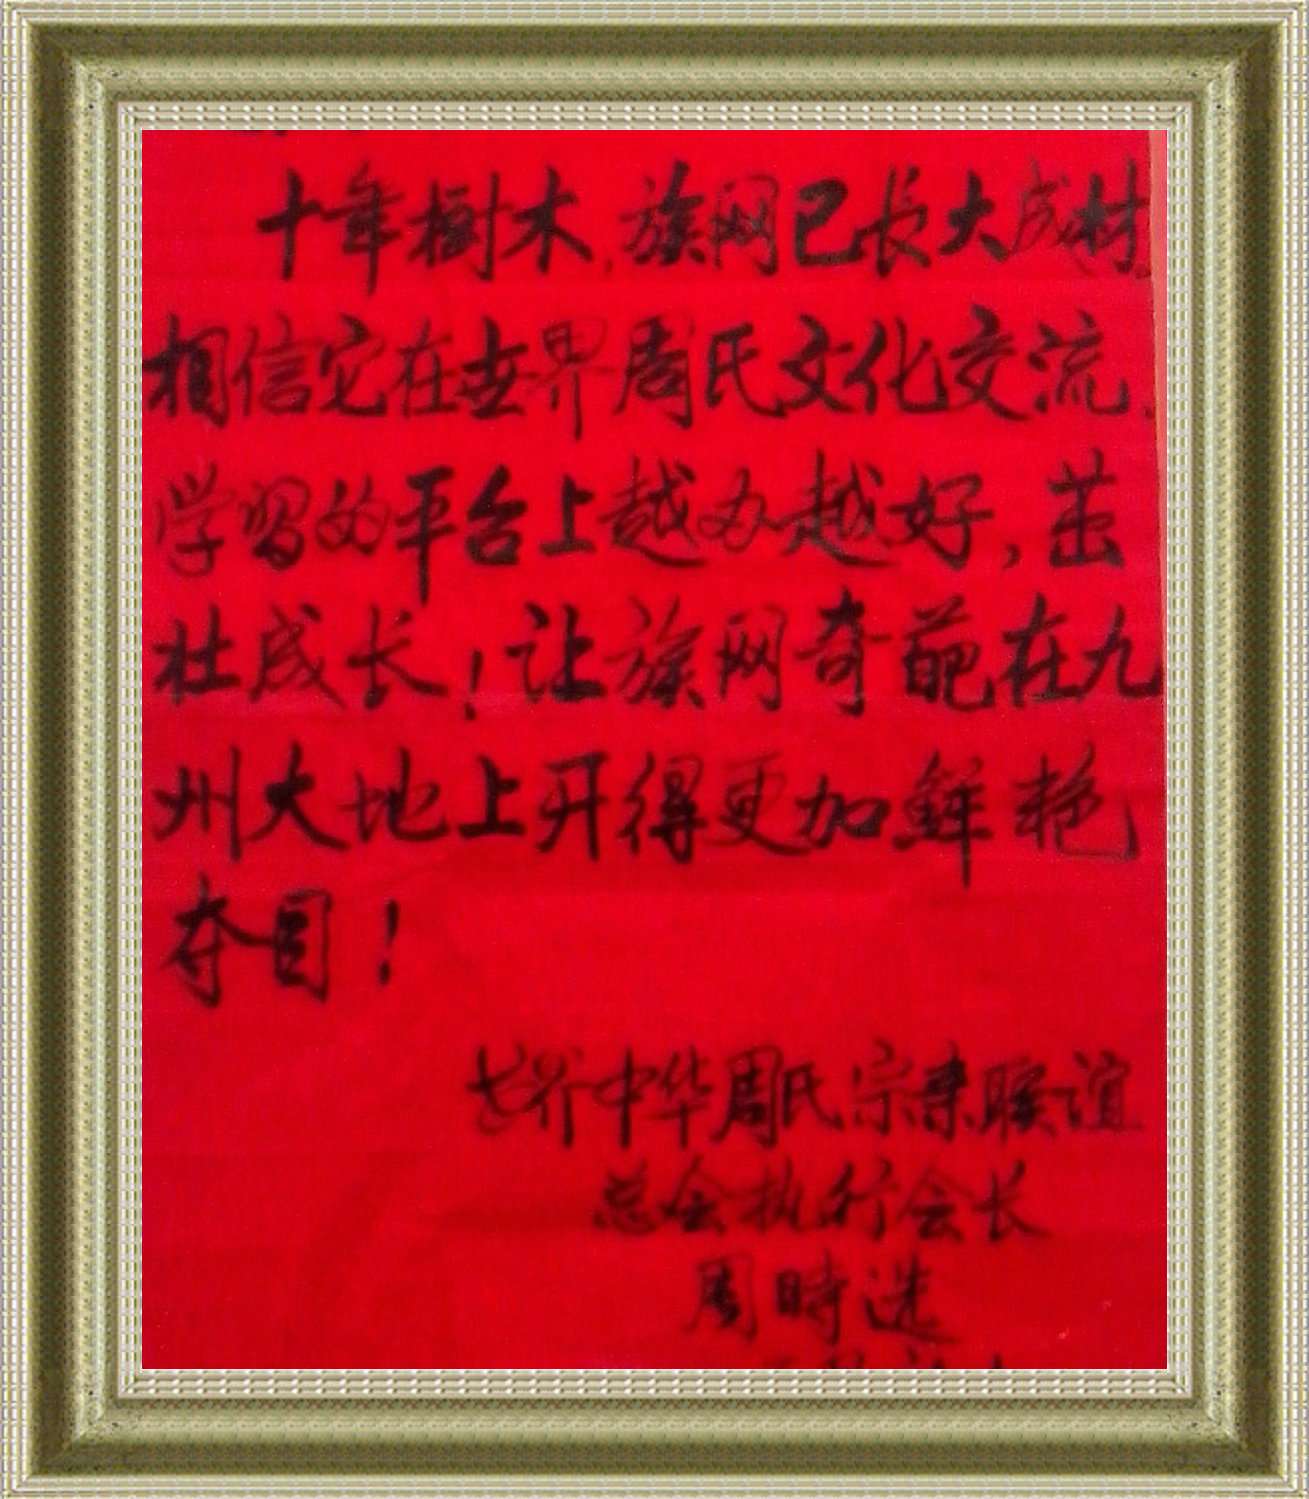 十年樹木,族网已长大成材,
相信它在世界周氏文化交流、
学习的平台上越办越好,茁
壮成长!让族网奇葩在九
州大地上开得更加鲜艳
夺目!
世界中华周氏宗亲联谊
总会执行会长
周時选